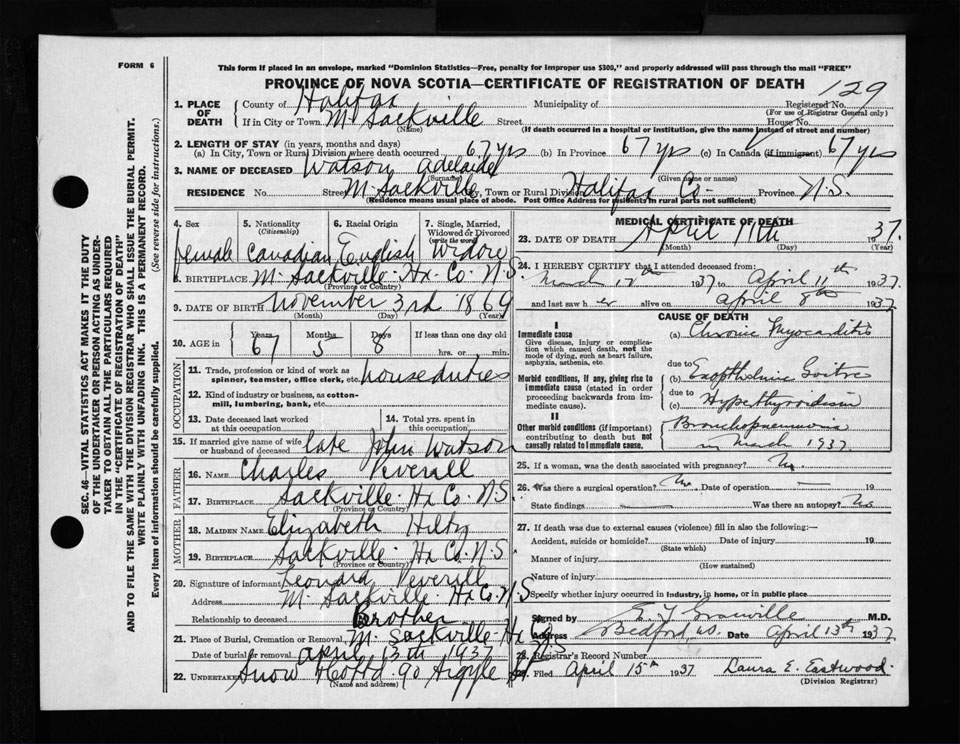 FORM 6
This form if placed in an envelope, marked "Dominion Statistics—Free, penalty for improper use $300," and properly addressed will pass through the mail "FREE"
PROVINCE OF NOVA SCOTIA—CERTIFICATE OF REGISTRATION OF DEATH
129
1. PLACE OF DEATH
County of Halifax Municipality of Registered No.
(For use of Registrar General only)
If in City or Town M. Sackville Street House No.
(Name) (If death occurred in a hospital or institution, give the name instead of street and number)
2. LENGTH OF STAY (in years, months and days)
(a) In City, Town or Rural Division where death occurred 67 yrs (b) In Province 67 yrs (c) In Canada (if immigrant) 67 yrs
3. NAME OF DECEASED Watson Adelaide
(Surname) (Given name or names)
RESIDENCE No. Street M. Sackville City, Town or Rural Division Halifax Co- Province N.S.
(Residence means usual place of abode. Post Office Address for residents in rural parts not sufficient)
4. Sex 5. Nationality (Citizenship) 6. Racial Origin 7. Single, Married, Widowed or Divorced (write the word)
Female Canadian English Widow
8. BIRTHPLACE M. Sackville Hx. Co. N.S.
(Province or Country)
9. DATE OF BIRTH November 3rd 1869
(Month) (Day) (Year)
10. AGE in Years Months Days If less than one day old
67 5 8 hrs. or min.
OCCUPATION
11. Trade, profession or kind of work as spinner, teamster, office clerk, etc. house duties
12. Kind of industry or business, as cotton-mill, lumbering, bank, etc.
13. Date deceased last worked at this occupation
14. Total yrs. spent in this occupation
15. If married give name of wife or husband of deceased late John Watson
FATHER
16. NAME Charles Peverall
17. BIRTHPLACE Sackville Hx Co. N.S.
(Province or Country)
MOTHER
18. MAIDEN NAME Elizabeth
19. BIRTHPLACE Sackville Hx Co. N.S.
(Province or Country)
20. Signature of informant Leonard Peverall
Address M. Sackville Hx Co. N.S
Relationship to deceased Brother
21. Place of Burial, Cremation or Removal M. Sackville Hx
Date of burial or removal April 13th 1937
22. UNDERTAKER Snow 90 Argyle St
(Name and address)
MEDICAL CERTIFICATE OF DEATH
23. DATE OF DEATH April 11th 1937.
(Month) (Day) (Year)
24. I HEREBY CERTIFY that I attended deceased from:
March 1937 to April 11th 1937
and last saw her alive on April 8th 1937
CAUSE OF DEATH
I
Immediate cause
Give disease, injury or complication which caused death, not the mode of dying, such as heart failure, asphyxia, asthenia, etc.
(a) Chronic Myocarditis
due to
Morbid conditions, if any, giving rise to immediate cause (stated in order proceeding backwards from immediate cause).
(b) Exopthalmic Goitre
due to
(c) Hyperthyroidism
II
Other morbid conditions (if important) contributing to death but not causally related to immediate cause.
Bronchopneumonia
in March 1937.
25. If a woman, was the death associated with pregnancy? No
26. Was there a surgical operation? No Date of operation — 19
State findings Was there an autopsy? No
27. If death was due to external causes (violence) fill in also the following:—
Accident, suicide or homicide? Date of injury 19
(State which)
Manner of injury
(How sustained)
Nature of injury
Specify whether injury occurred in industry, in home, or in public place
Signed by M.D.
Address Bedford N.S. Date April 13th 1937
28. Registrar's Record Number
29. Filed April 15th 1937 Laura E. Eastwood.
(Division Registrar)
SEC. 46—VITAL STATISTICS ACT MAKES IT THE DUTY
OF THE UNDERTAKER OR PERSON ACTING AS UNDER-
TAKER TO OBTAIN ALL THE PARTICULARS REQUIRED
IN THE "CERTIFICATE OF REGISTRATION OF DEATH"
AND TO FILE THE SAME WITH THE DIVISION REGISTRAR WHO SHALL ISSUE THE BURIAL PERMIT.
WRITE PLAINLY WITH UNFADING INK. THIS IS A PERMANENT RECORD.
Every item of information should be carefully supplied. (See reverse side for instructions.)